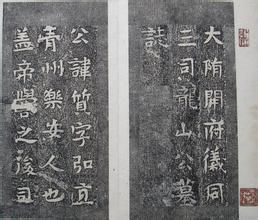 大隋開府儀同
三司龍山公墓
誌
公諱質字弘直
青州樂安人也
蓋帝嚳之後司